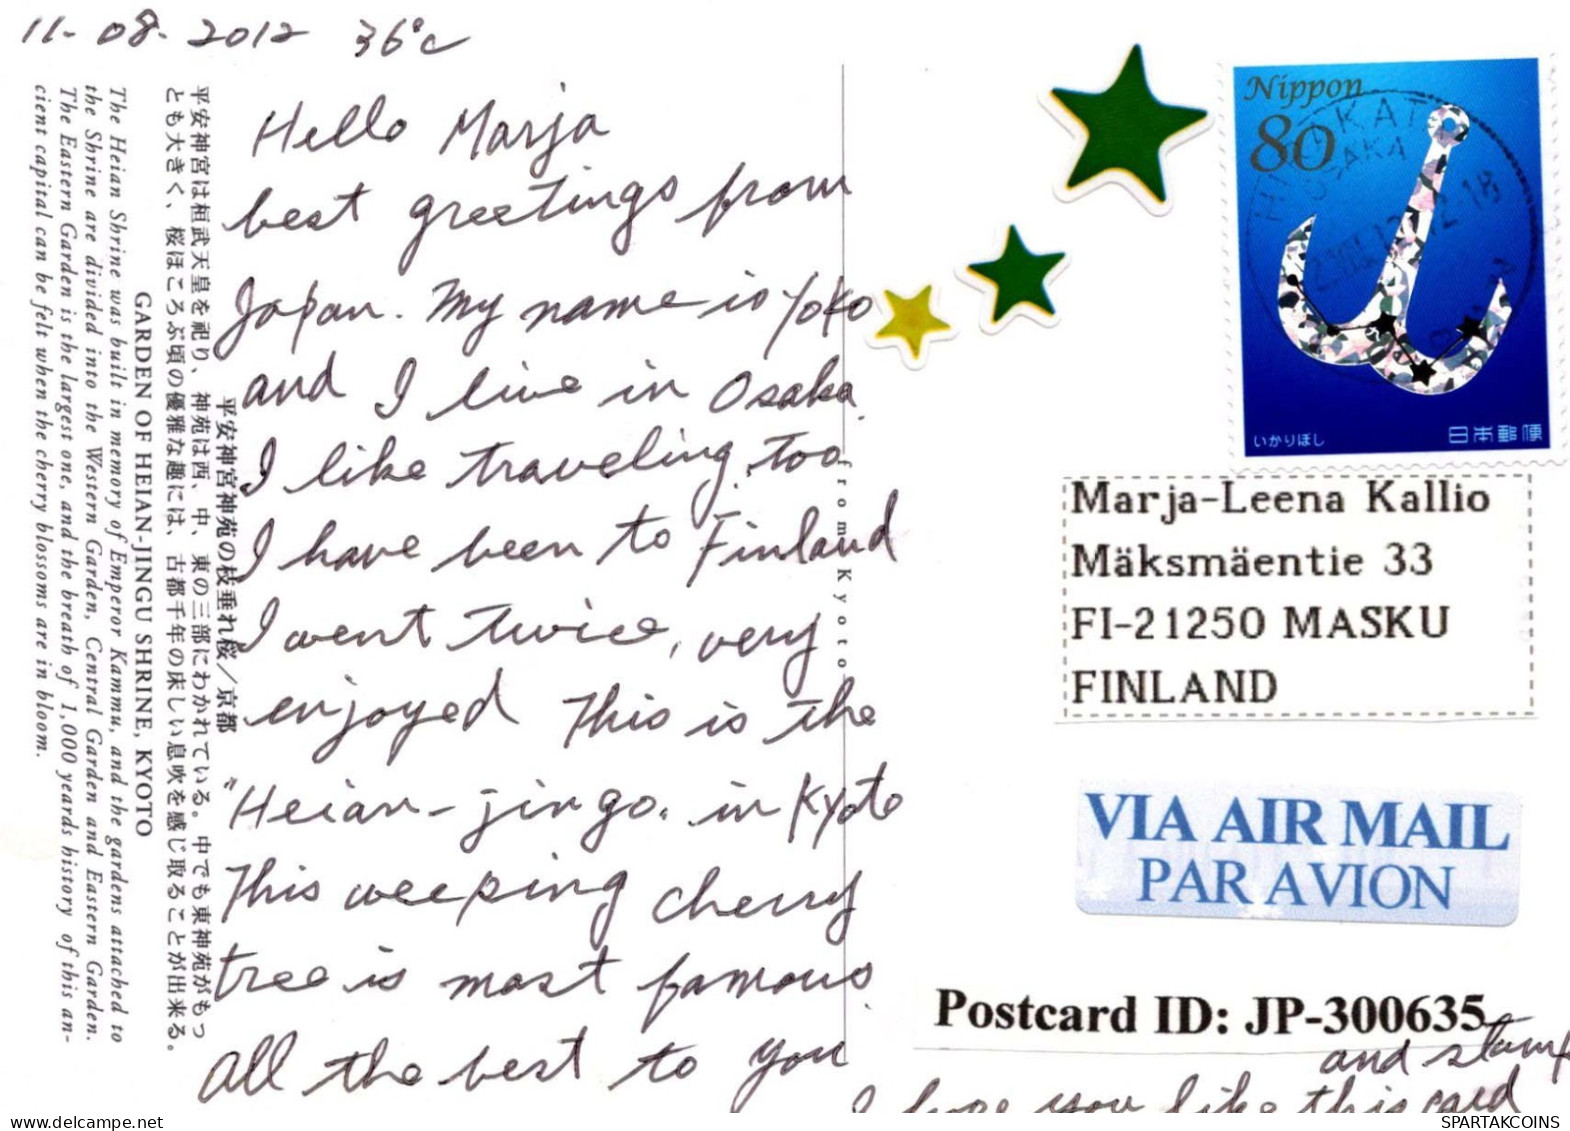 11-08-2012 36°C
Hello Marja
best greetings from
Japan. My name is Yoko
and I live in Osaka.
I like traveling, too
I have been to Finland
I went twice, very
enjoyed This is the
"Heian-jingo. in Kyoto
This weeping cherry
tree is most famous.
All the best to you
I hope you like this card
and stamp
平安神宮神苑の枝垂れ桜／京都
平安神宮は桓武天皇を祀り、神苑は西、中、東の三部にわかれている。中でも東神苑がもっ
とも大きく、桜ほころぶ頃の優雅な趣には、古都千年の床しい息吹を感じ取ることが出来る。
GARDEN OF HEIAN-JINGU SHRINE, KYOTO
The Heian Shrine was built in memory of Emperor Kammu, and the gardens attached to
the Shrine are divided into the Western Garden, Central Garden and Eastern Garden.
The Eastern Garden is the largest one, and the breath of 1,000 yeards history of this an-
cient capital can be felt when the cherry blossoms are in bloom.
from Kyoto
Nippon
80
OSAKA
いかりぼし
日本郵便
Marja-Leena Kallio
Mäksmäentie 33
FI-21250 MASKU
FINLAND
VIA AIR MAIL
PAR AVION
Postcard ID: JP-300635
SPARTAKCOINS
delcampe.net